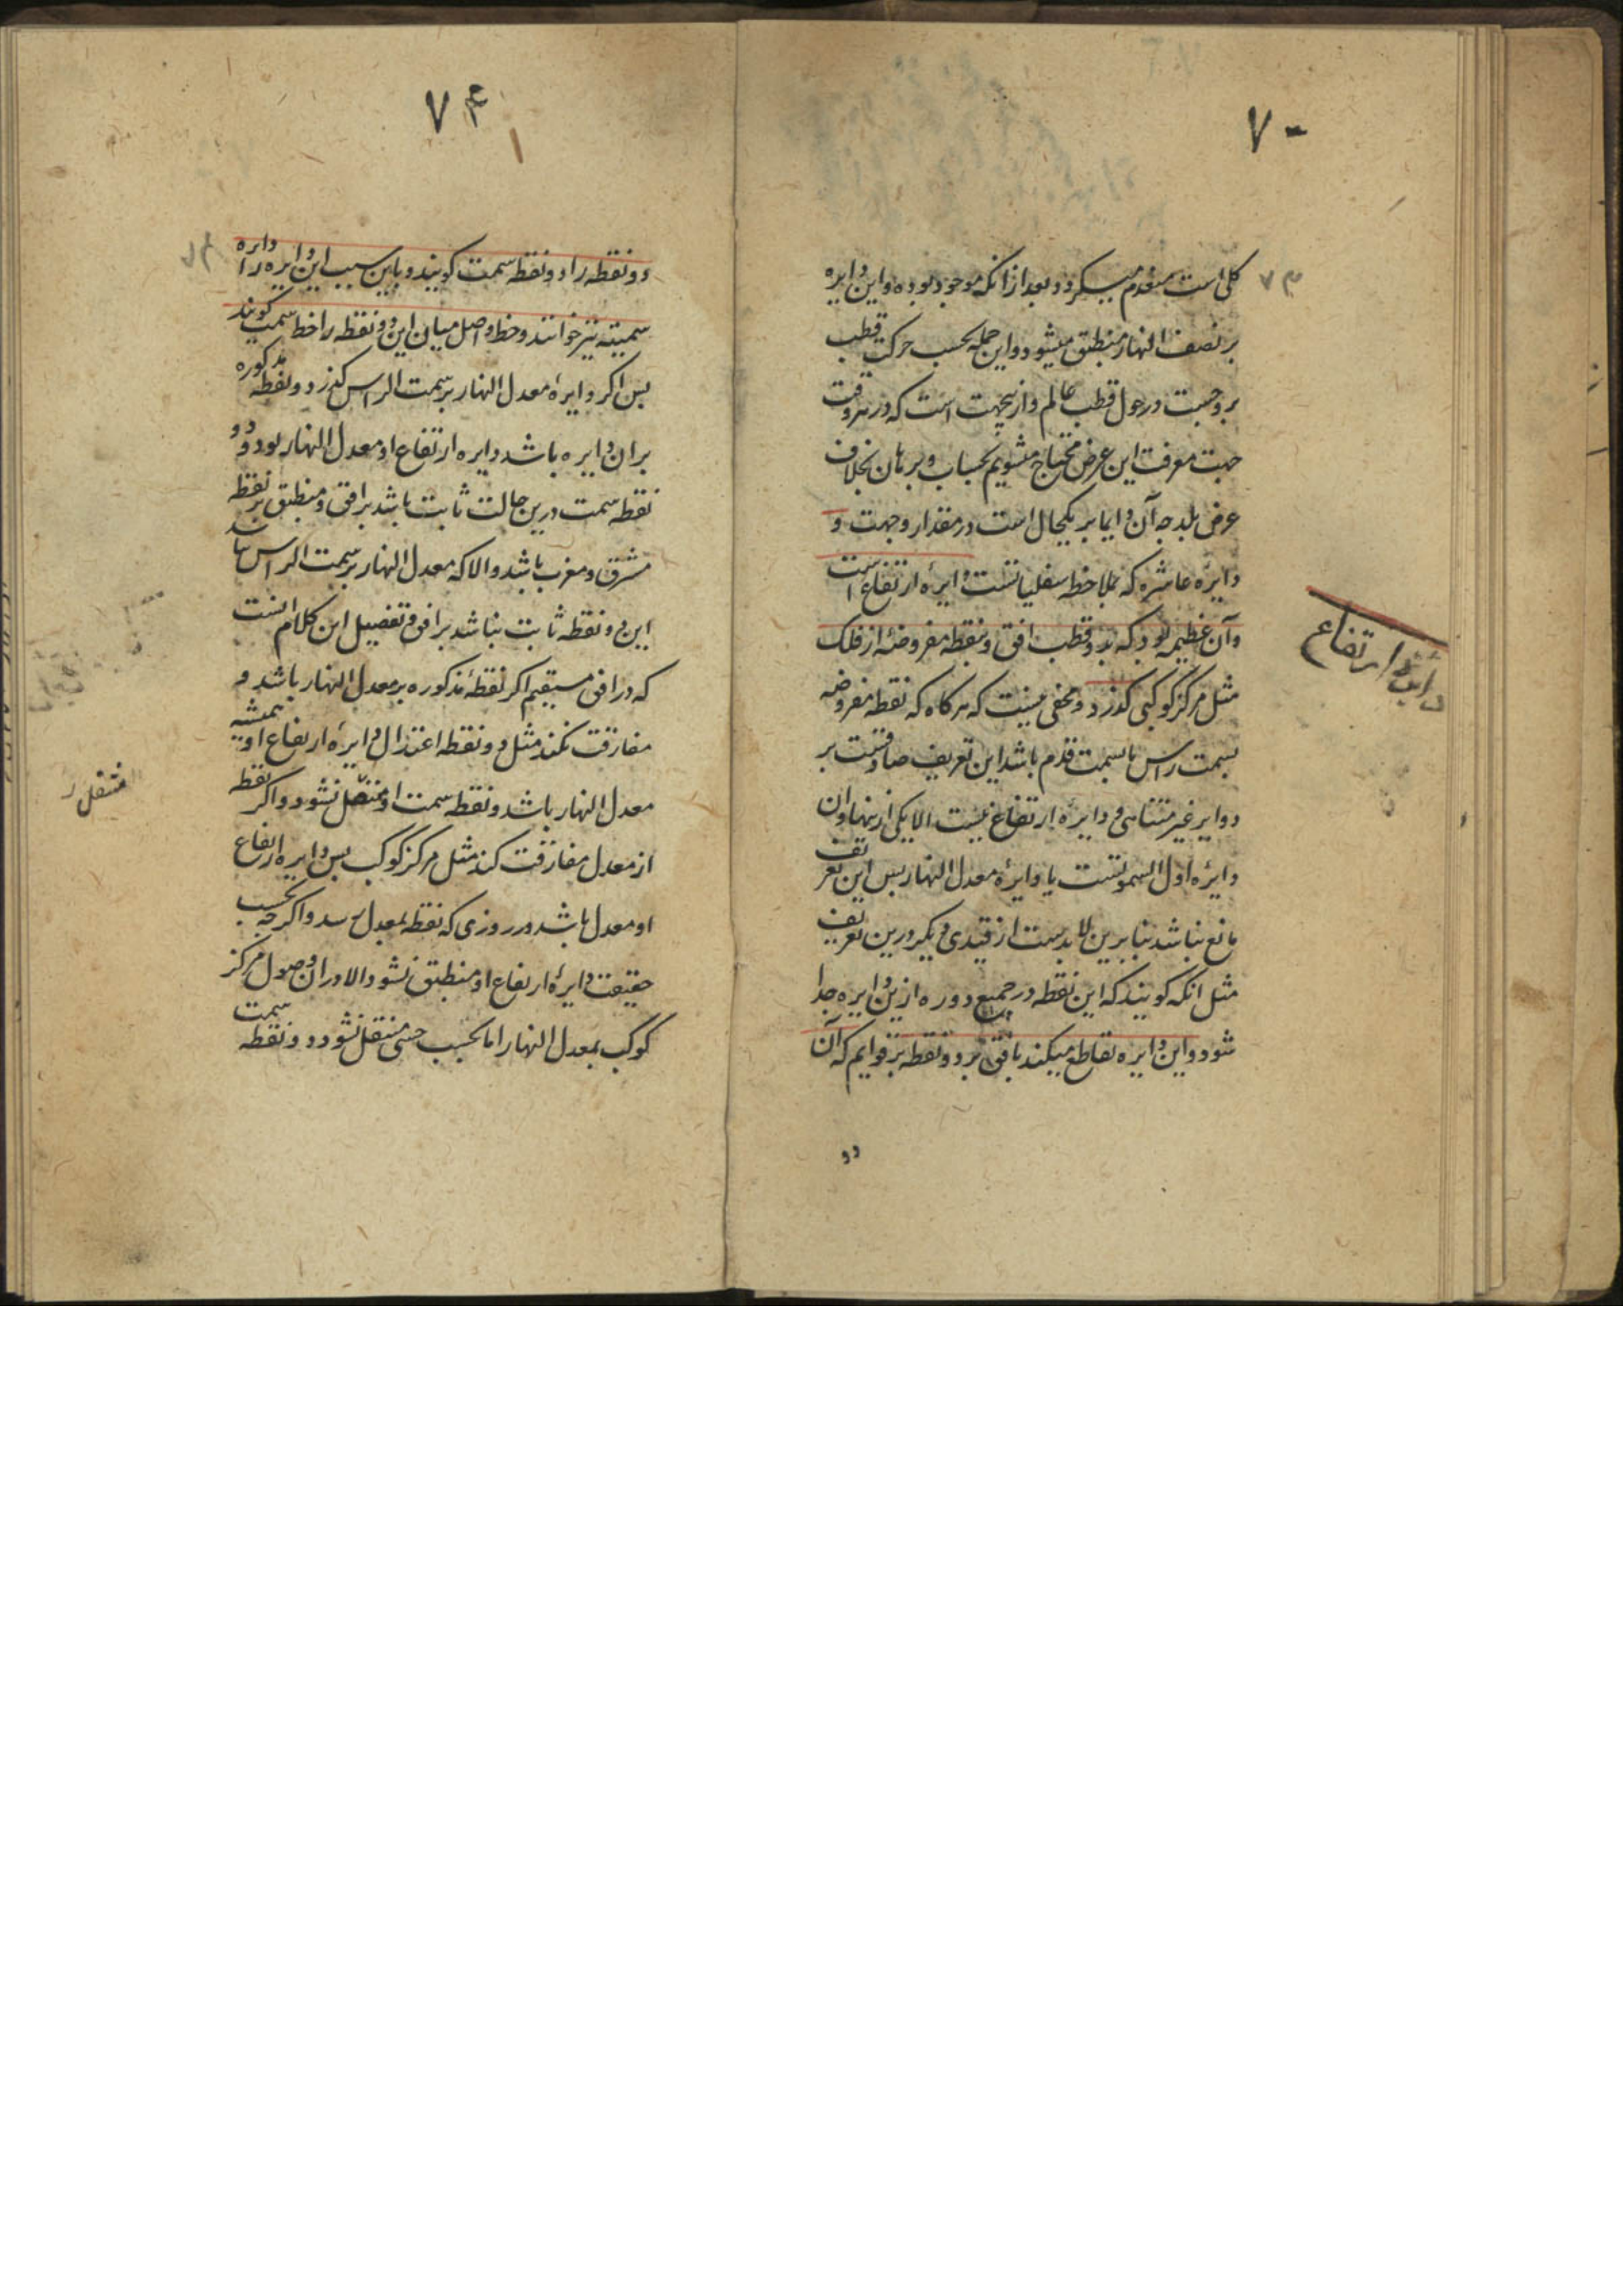 ۷۰
۷۳
کلی است منعدم میکردد بعد از انکه موجود بوده و این دایره
بر نصف النهار منطبق میشود و این جمله بحسب حرکت قطب
بروجست در حول قطب عالم و ازینجهت است که در هر وقت
جهت معرفت این عرض محتاج میشویم بحساب و برهان بخلاف
عرض بلد چه آن دایما بر یکحال است در مقدار و جهت و
دایرهٔ عاشره که بملاحظه سفلیاتست دایرهٔ ارتفاع است
وآن عظیمه بود که بدو قطب افق و بنقطه مفروضه از فلک
مثل مرکز کوکبی کذرد و مخفی نیست که هرکاه که نقطه مفروضه
بسمت راس یا بسمت قدم باشد این تعریف صادقست بر
دوایر غیر متناهی و دایرهٔ ارتفاع نیست الا یکی ازینها وان
دایرهٔ اول السموتست یا دایرهٔ معدل النهار پس این تعریف
مانع نباشد بنابرین لابدست از قیدی دیکر درین تعریف
مثل انکه کویند که این نقطه در جمیع دوره ازین دایره جدا
شود و این دایره تقاطع میکند با افق بر دو نقطه بر قوایم که آن
دو
دایره ارتفاع
۷۴
۷۴
دو نقطه را دو نقطه سمت کویند و باین سبب این دایره را دایره
سمیته نیز خوانند و خط واصل میان این دو نقطه را خط سمت کویند
پس اکر دایرهٔ معدل النهار بر سمت الراس کذرد و نقطه مذکوره
بران دایره باشد دایره ارتفاع او معدل النهار بود و دو
نقطه سمت درین حالت ثابت باشد بر افق و منطبق بر نقطه
مشرق و مغرب باشد و الا که معدل النهار بر سمت الراس نباشد
این دو نقطه ثابت نباشد بر افق و تفصیل این کلام انست
که در افق مستقیم اکر نقطهٔ مذکوره بر معدل النهار باشد و
مفارقت نکند مثل دو نقطه اعتدال دایرهٔ ارتفاع او همیشه
معدل النهار باشد و نقطه سمت او منتقل نشود و اکر نقطه
از معدل مفارقت کند مثل مرکز کوکب پس دایره ارتفاع
او معدل باشد در روزی که نقطه بمعدل رسد و اکرچه بحسب
حقیقت دایرهٔ ارتفاع او منطبق نشود الا در ان وصول مرکز
کوکب بمعدل النهار اما بحسب حس منتقل نشود و دو نقطه سمت
منتقل